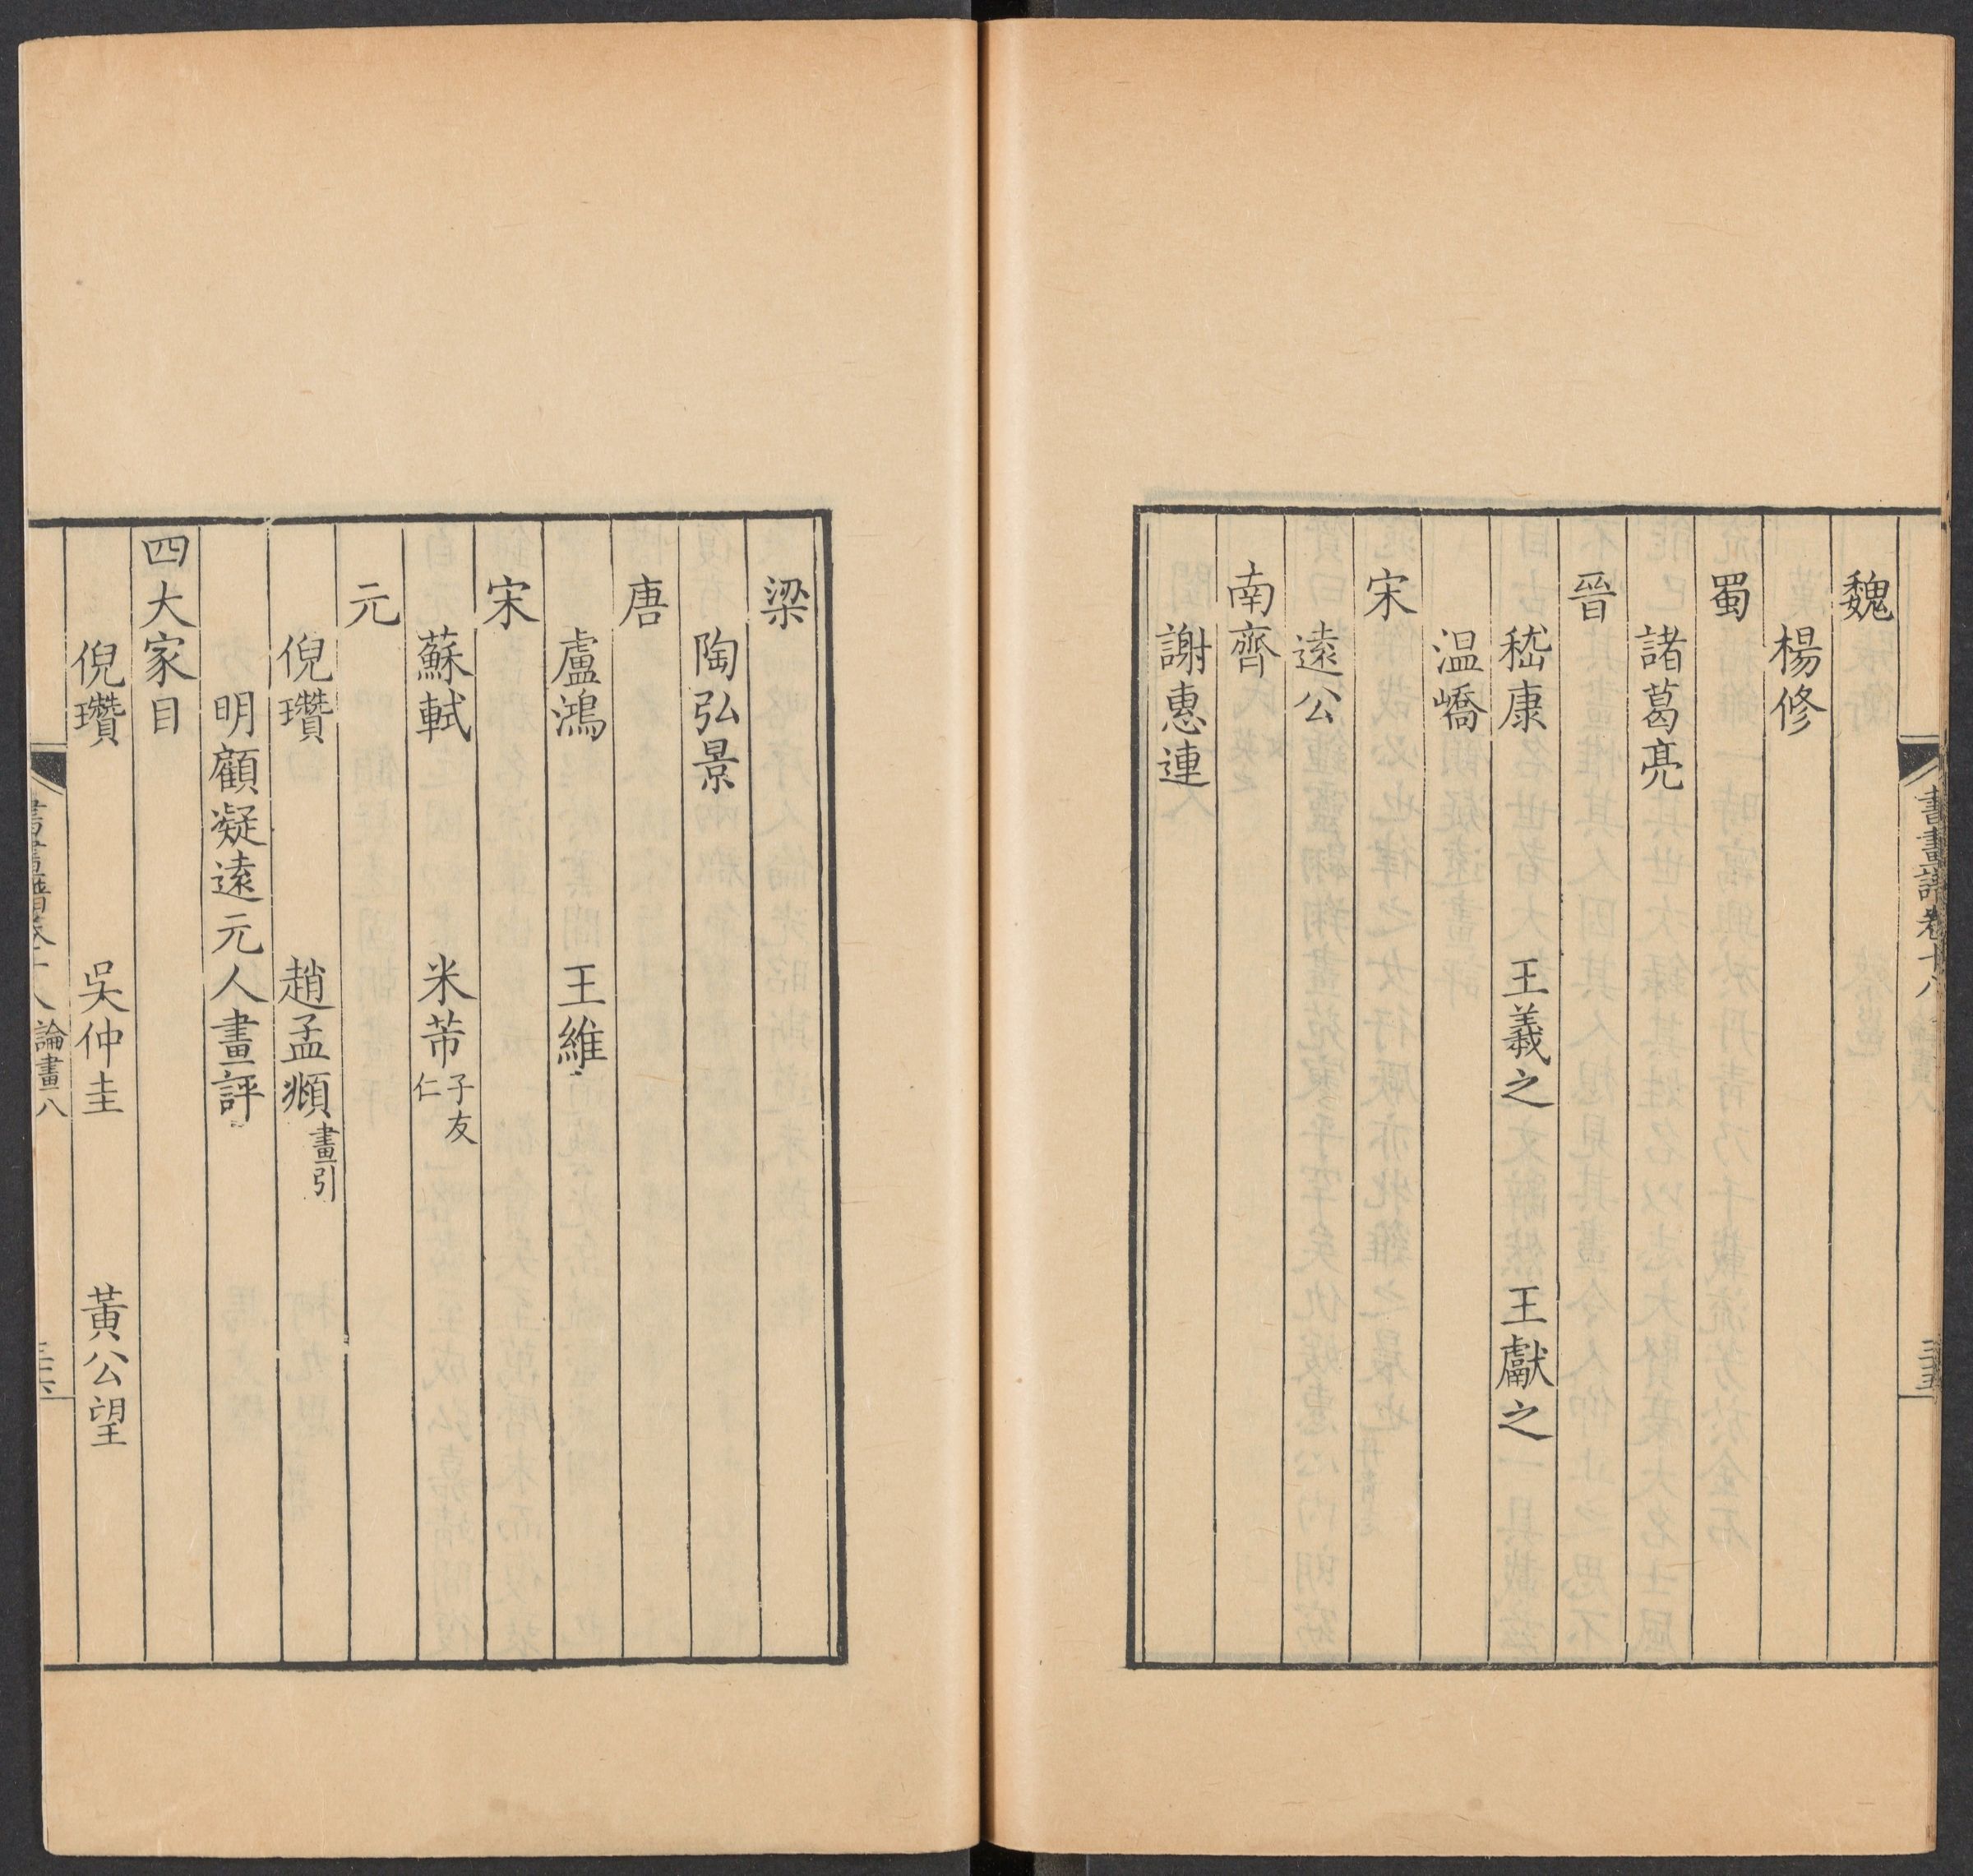 書畫譜卷十八
魏
楊修
蜀
諸葛亮
晉
嵇康 王羲之 王獻之
温嶠
宋
遠公
南齊
謝惠連
梁
陶弘景
唐
盧鴻 王維
宋
蘇軾 米芾子友仁
元
倪瓚 趙孟頫畫引
明顧凝遠元人畫評
四大家目
倪瓚 吳仲圭 黃公望
論畫八